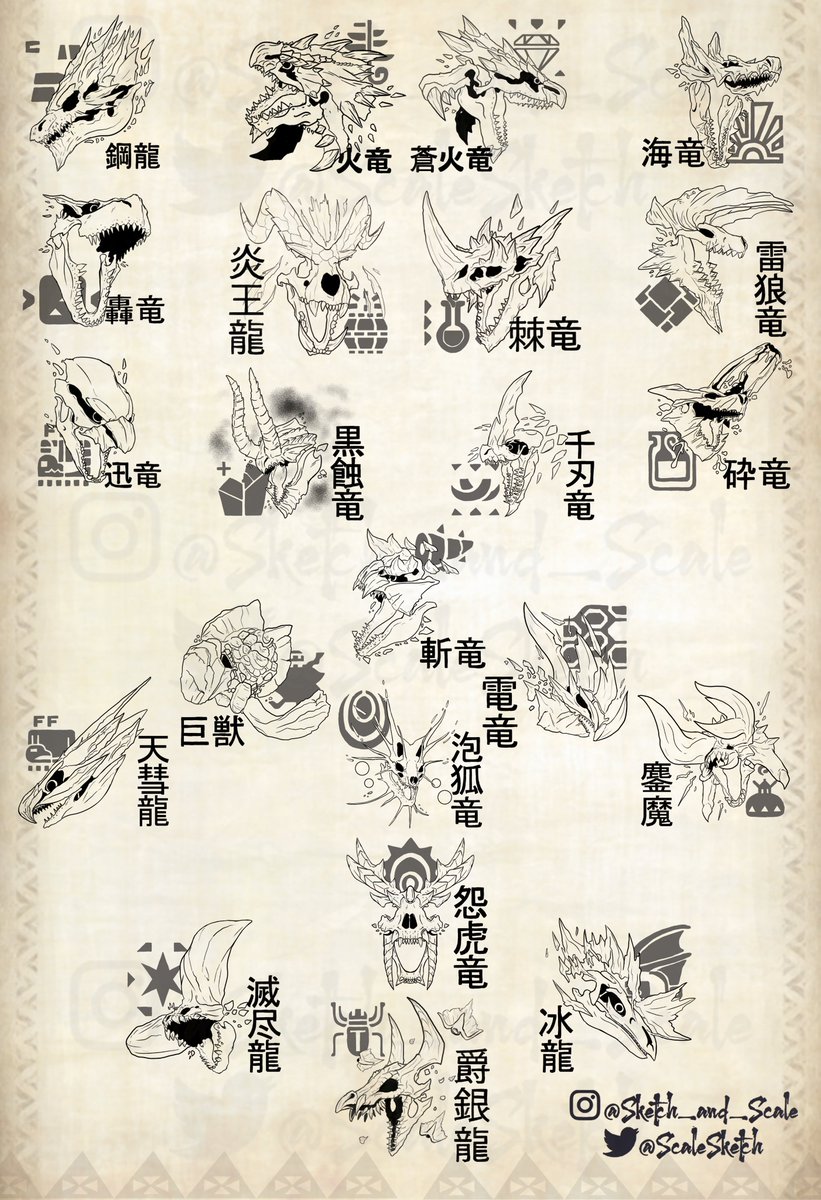 鋼龍
火竜
蒼火竜
海竜
轟竜
炎王龍
棘竜
雷狼竜
迅竜
黒蝕竜
千刃竜
砕竜
@Sketch_and_Scale
斬竜
巨獣
電竜
FF
天彗龍
泡狐竜
鏖魔
怨虎竜
滅尽龍
冰龍
爵銀龍
@Sketch_and_Scale
@ScaleSketch